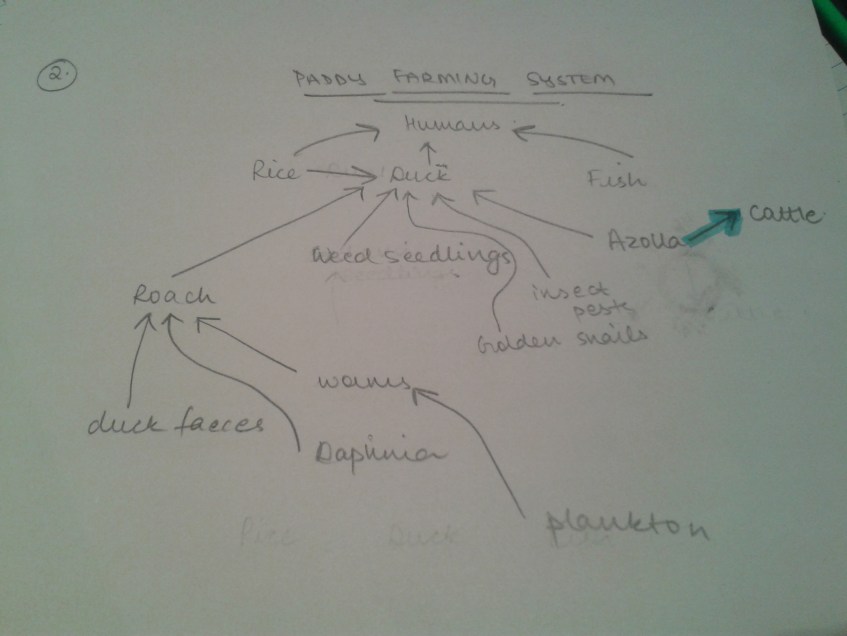 2.
PADDY FARMING SYSTEM
Humans
Rice
Duck
Fish
Cattle
Azolla
Weed seedlings
insect
pests
Roach
Golden snails
worms
duck faeces
Daphnia
plankton
Rice Duck